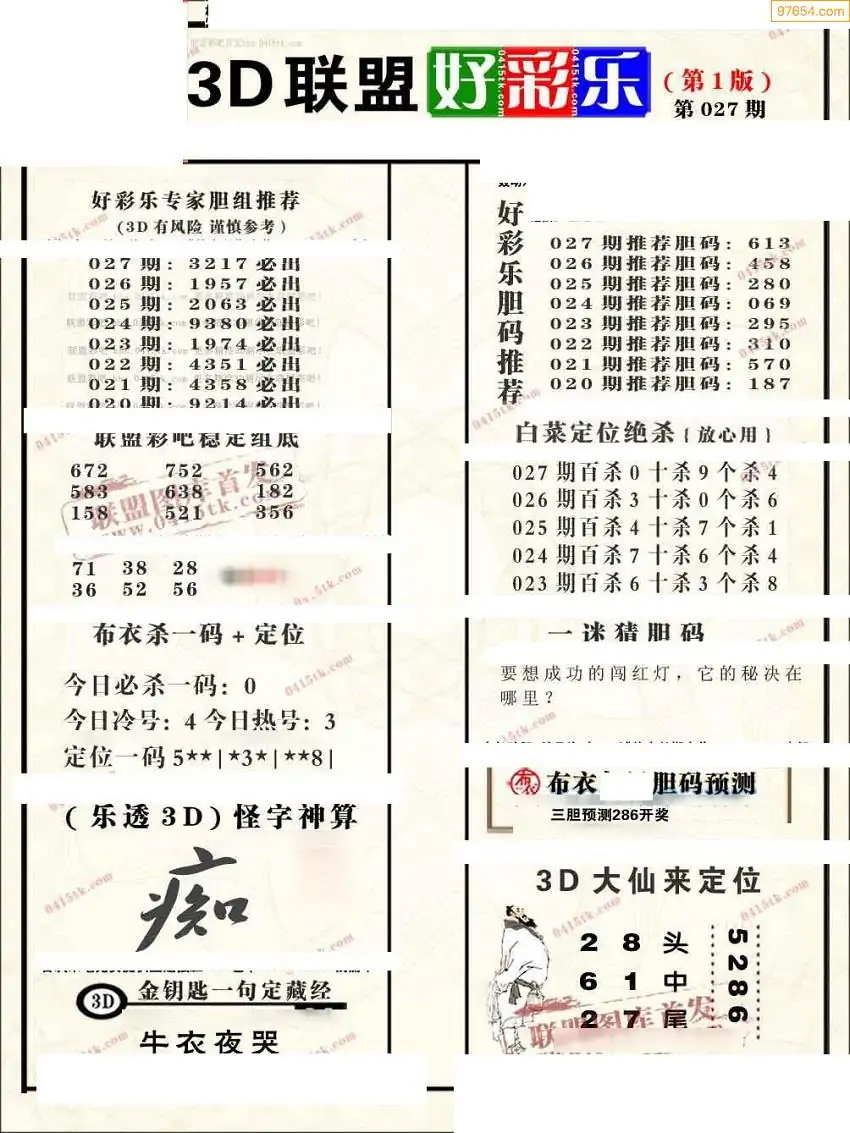 97654.com
3D联盟好彩乐
(第1版)
第027期
好彩乐专家胆组推荐
(3D有风险 谨慎参考)
027期: 3217必出
026期: 1957必出
025期: 2063必出
024期: 9380必出
023期: 1974必出
022期: 4351必出
021期: 4358必出
020期: 9214必出
联盟彩吧稳定组底
672 752 562
583 638 182
158 521 356
联盟图库首发
www.0415tk.com
71 38 28
36 52 56
布衣杀一码+定位
今日必杀一码: 0
今日冷号: 4 今日热号: 3
定位一码 5**|*3*|**8|
(乐透3D)怪字神算
痴
3D 金钥匙一句定藏经
牛衣夜哭
好彩乐胆码推荐
027期推荐胆码: 613
026期推荐胆码: 458
025期推荐胆码: 280
024期推荐胆码: 069
023期推荐胆码: 295
022期推荐胆码: 310
021期推荐胆码: 570
020期推荐胆码: 187
白菜定位绝杀{放心用}
027期百杀0十杀9个杀4
026期百杀3十杀0个杀6
025期百杀4十杀7个杀1
024期百杀7十杀6个杀4
023期百杀6十杀3个杀8
一迷猜胆码
要想成功的闯红灯，它的秘决在
哪里？
布衣 布衣 胆码预测
三胆预测286开奖
3D大仙来定位
2 8 头
6 1 中
2 7 尾
5286
联盟图库首发